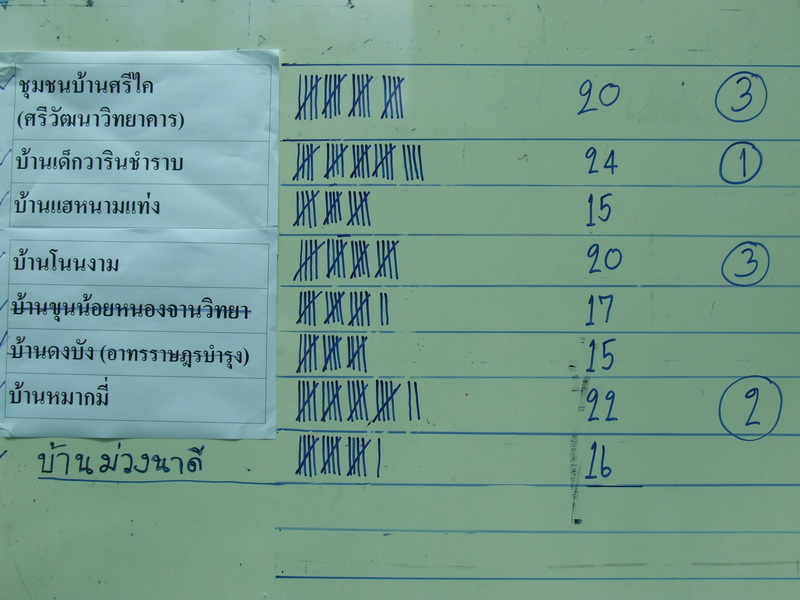 ชุมชนบ้านศรีไค 20 3
(ศรีวัฒนาวิทยาคาร)
บ้านเด็กวารินชำราบ 24 1
บ้านแฮหนามแท่ง 15
บ้านโนนงาม 20 3
บ้านขุนน้อยหนองจานวิทยา 17
บ้านดงบัง (อาทรราษฎรบำรุง) 15
บ้านหมากมี่ 22 2
บ้านม่วงนาดี 16